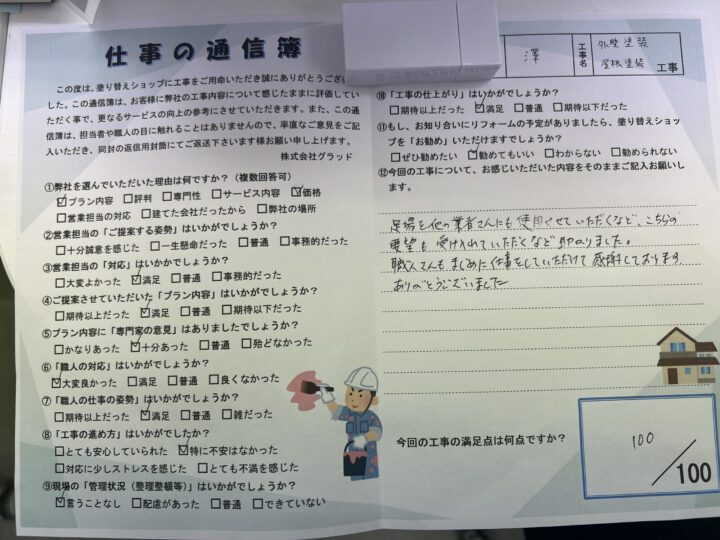 仕事の通信簿
この度は、塗り替えショップに工事をご用命いただき誠にありがとうござい
した。この通信簿は、お客様に弊社の工事内容について感じたままに評価してい
ただく事で、更なるサービスの向上の参考にさせていただきます。また、この
信簿は、担当者や職人の目に触れることはありませんので、率直なご意見をご記
入いただき、同封の返信用封筒にてご返送下さいます様お願い申し上げます。
株式会社グラッド
①弊社を選んでいただいた理由は何ですか?(複数回答可)
☑プラン内容 □評判 □専門性 □サービス内容 ☑価格
□営業担当の対応 □建てた会社だったから □弊社の場所
②営業担当の「ご提案する姿勢」はいかがでしょうか?
□十分誠意を感じた □一生懸命だった □普通 □事務的だった
③営業担当の「対応」はいかかでしょうか?
□大変よかった ☑満足 □普通 □事務的だった
④ご提案させていただいた「プラン内容」はいかがでしょうか?
□期待以上だった ☑満足 □普通 □期待以下だった
⑤プラン内容に「専門家の意見」はありましたでしょうか?
□かなりあった ☑十分あった □普通 □殆どなかった
⑥「職人の対応」はいかがでしょうか?
☑大変良かった □満足 □普通 □良くなかった
⑦「職人の仕事の姿勢」はいかがでしょうか?
□期待以上だった ☑満足 □普通 □雑だった
⑧「工事の進め方」はいかがでしたか?
□とても安心していられた ☑特に不安はなかった
□対応に少しストレスを感じた □とても不満を感じた
⑨現場の「管理状況(整理整頓等)」はいかがでしょうか?
☑言うことなし □配慮があった □普通 □できていない
澤 工事名 外壁塗装
屋根塗装 工事
⑩「工事の仕上がり」はいかがでしょうか?
□期待以上だった ☑満足 □普通 □期待以下だった
⑪もし、お知り合いにリフォームの予定がありましたら、塗り替えショッ
プを「お勧め」いただけますでしょうか?
□ぜひ勧めたい ☑勧めてもいい □わからない □勧められない
⑫今回の工事について、お感じいただいた内容をそのままご記入お願いし
ます。
足場を他の業者さんにも使用させていただくなど、こちらの
要望も受け入れていただくなど助かりました。
職人さんもまじめに仕事をしていただけて感謝しております
ありがとうございました
今回の工事の満足点は何点ですか?
100
/100